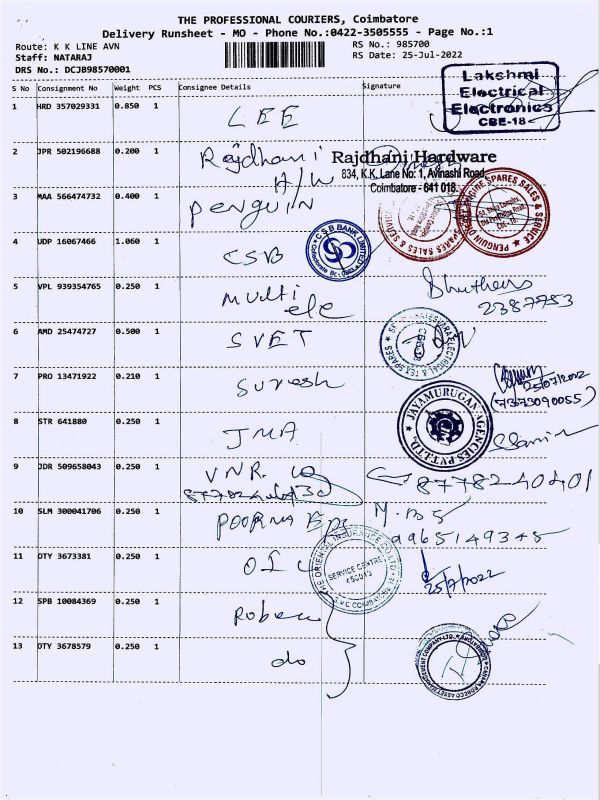 THE PROFESSIONAL COURIERS, Coimbatore
Delivery Runsheet - MO - Phone No.:0422-3505555 - Page No.:1
Route: K K LINE AVN
RS No.: 985700
Staff: NATARAJ
RS Date: 25-Jul-2022
DRS No.: DCJB98570001
S No Consignment No Weight PCS Consignee Details Signature
Lakshmi
Electrical
Electronics
CBE-18
1 HRD 357029331 0.850 1 LEE
2 JPR 502196688 0.200 1 Rajdhani
H/W
Rajdhani Hardware
834, K.K. Lane No: 1, Avinashi Road,
Coimbatore - 641 018.
3 MAA 566474732 0.400 1 PENGUIN
PENGUIN DIESEL ENGINE SPARES SALES & SERVICE
SPARES SALES & SERVICE
4 UDP 16067466 1.060 1 CSB
CSB BANK LIMITED
5 VPL 939354765 0.250 1 Multi
ele
2387753
6 AMD 25474727 0.500 1 SVET
ELECTRICAL & TEX SPARES
7 PRO 13471922 0.210 1 Suresh
25/07/2022
(7373090055)
8 STR 641880 0.250 1 JMA
JAYAMURUGAN AGENCIES PVT.LTD.,
9 JDR 509658043 0.250 1 VNR.
8778240401
10 SLM 300041706 0.250 1 POORNA
11 OTY 3673381 0.250 1
THE ORIENTAL INSURANCE CO.LTD
SERVICE CENTRE
25/7/2022
12 SPB 10084369 0.250 1 Robeco
13 OTY 3678579 0.250 1 do
CANARA ROBECO ASSET MANAGEMENT COMPANY LTD.